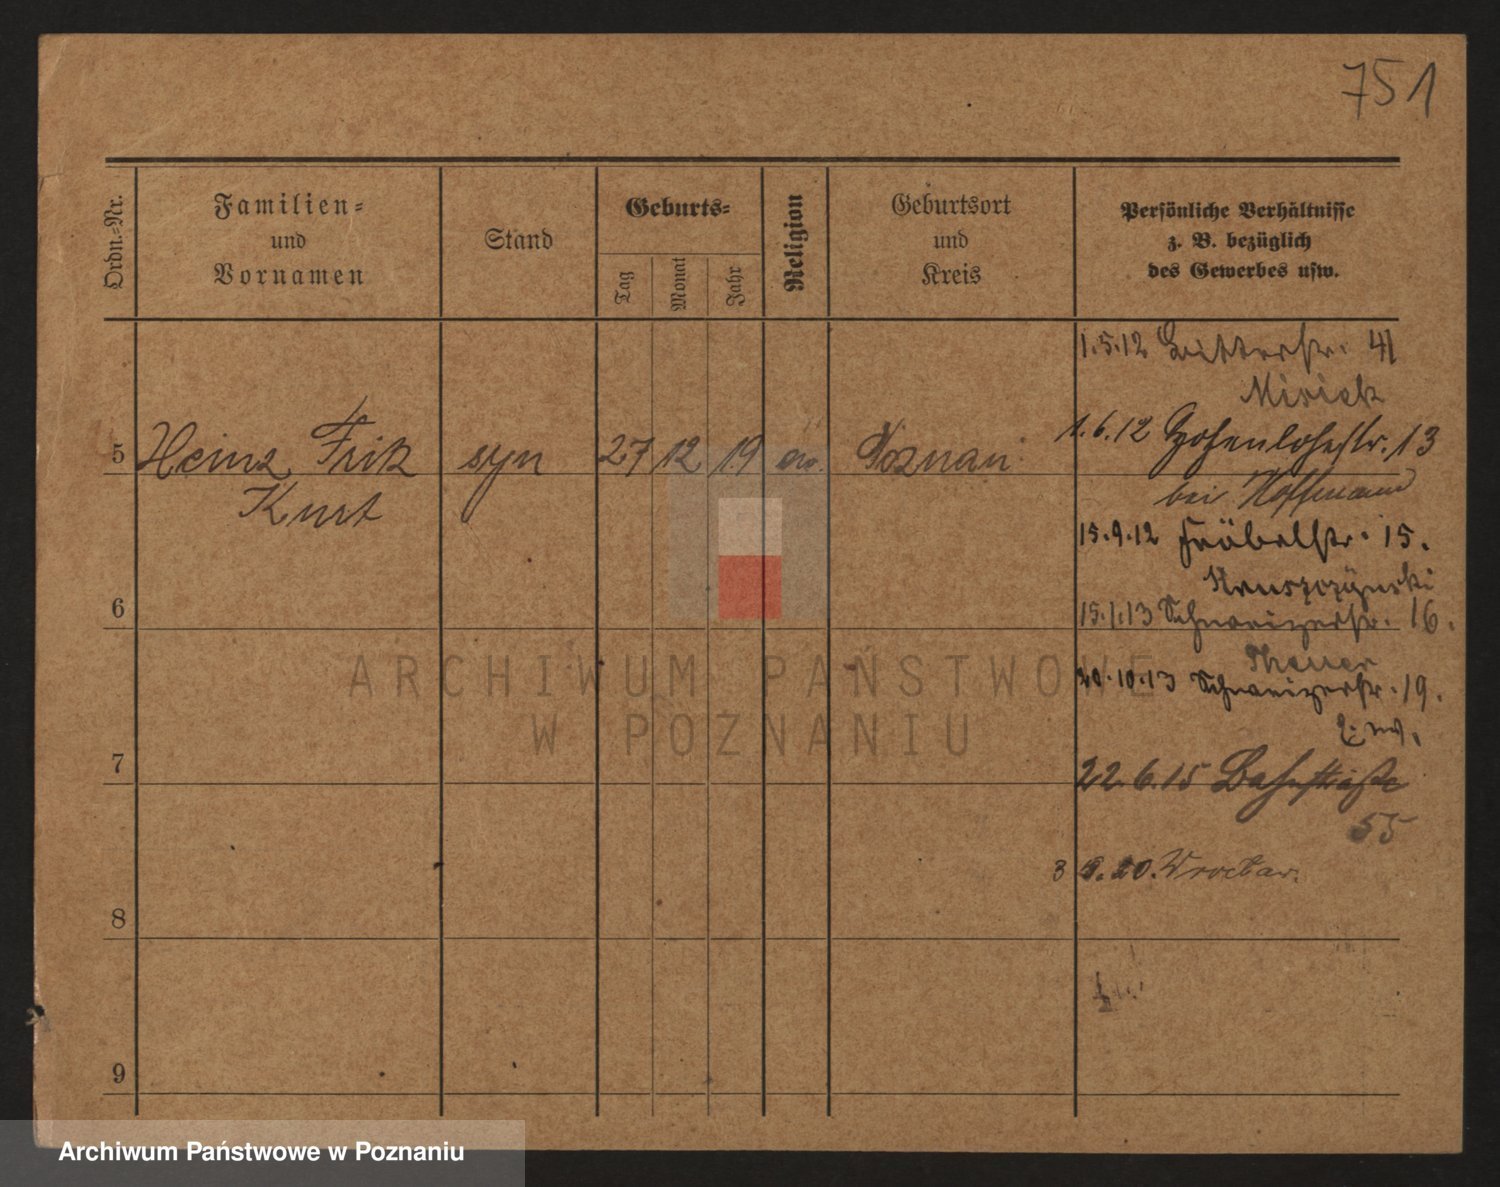 751
Ordn.-Nr.
Familien-
und
Vornamen
Stand
Geburts-
Tag
Monat
Jahr
Religion
Geburtsort
und
Kreis
Persönliche Verhältnisse
z. B. bezüglich
des Gewerbes usw.
1.5.12 Ritterstr. 41
1.6.12 Hohenlohestr. 13
5 Heinz Fritz syn 27 12 19 ev. Poznań
Kurt
bei Hoffmann
15.9.12 Fröbelstr. 15.
6
15.1.13 Schweizerstr. 16.
20.10.13 Schweizerstr. 19.
7
22.6.15 Bahnstraße
55
3 9.20. Wrocław.
8
9
ARCHIWUM PAŃSTWOWE
W POZNANIU
Archiwum Państwowe w Poznaniu